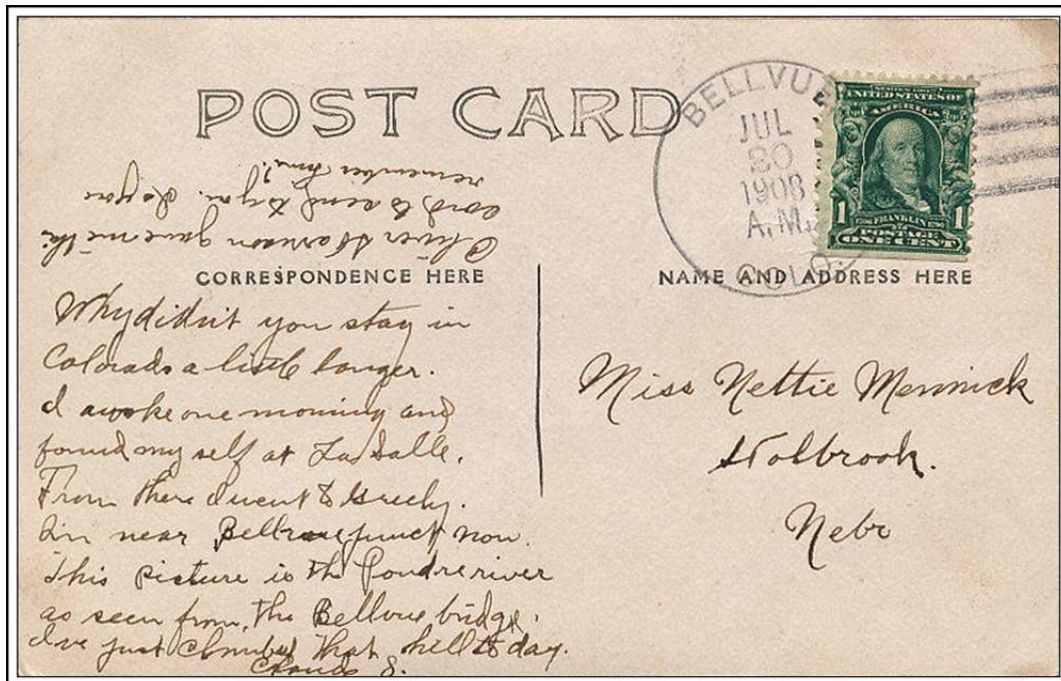 POST CARD
BELLVUE
JUL
20
1908
A.M.
COLO.
UNITED STATES OF
AMERICA
1 FRANKLIN 1
POSTAGE
ONE CENT
Oliver Harrison gave me this
card to send to you. Do you
remember him?
CORRESPONDENCE HERE
Why didn't you stay in
Colorado a little longer.
I awoke one morning and
found my self at La Salle.
From there I went to Greeley.
Im near Bellvue junct now.
This picture is the Poudre river
as seen from the Bellvue bridge.
Ive just climbed that hill to day.
S.
NAME AND ADDRESS HERE
Miss Nettie
Holbrook.
Nebr